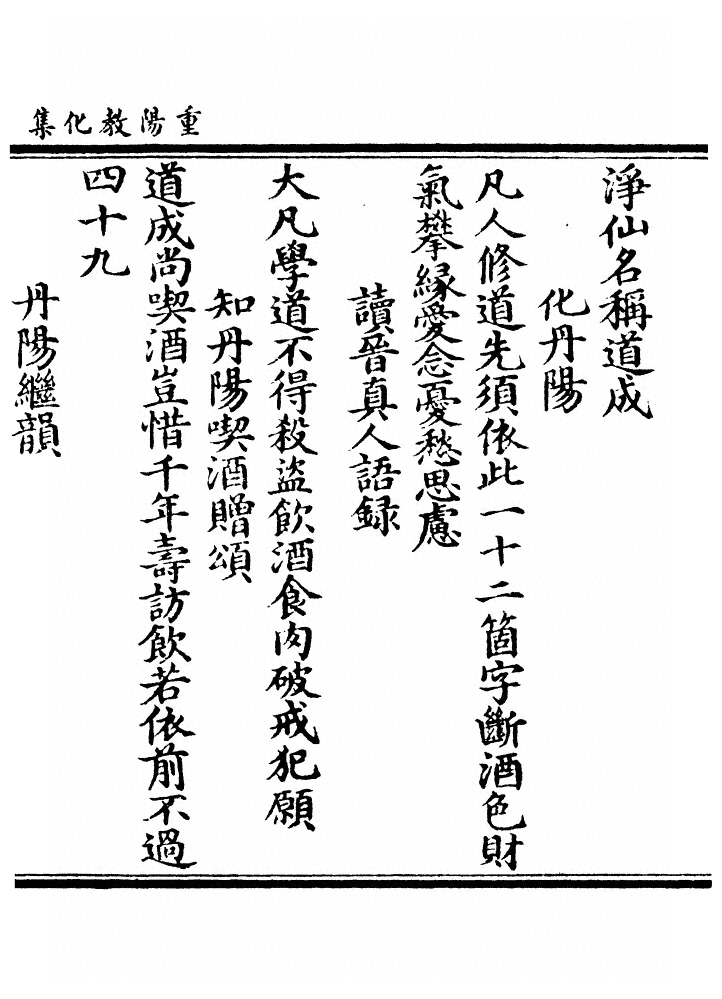 重陽教化集
淨仙名稱道成
化丹陽
凡人修道先須依此一十二箇字斷酒色財
氣攀緣愛念憂愁思慮
讀晉真人語録
大凡學道不得殺盜飲酒食肉破戒犯願
知丹陽喫酒贈頌
道成尚喫酒豈惜千年壽訪飲若依前不過
四十九
丹陽繼韻